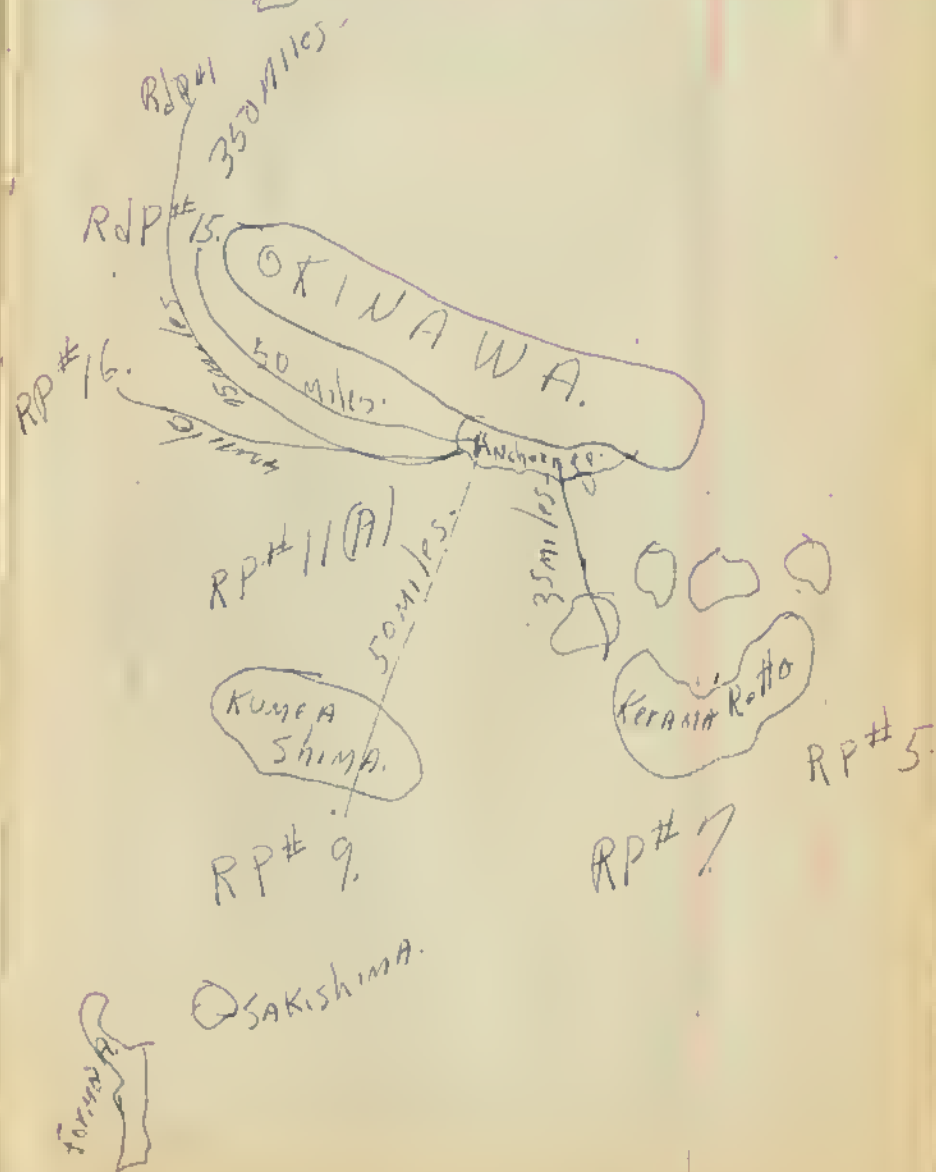 350 Miles.
RdP#1
RdP#15.
OKINAWA.
50 Miles.
RP#16.
Anchorage.
RP#11(A)
50 Miles.
35 Miles
KUMEA
SHIMA.
KerAMA Retto
RP#5.
RP#9.
RP#7.
SAKiShiMA.
FormosA